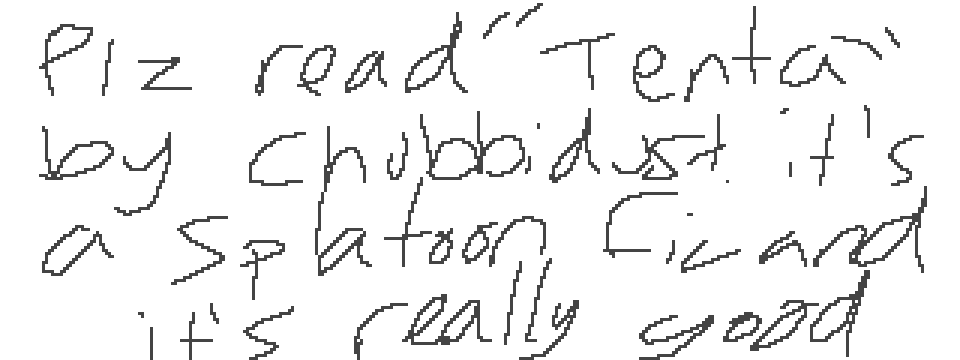 Plz read "Tenta"
by chubbidust. it's
a splatoon fic and
it's really good